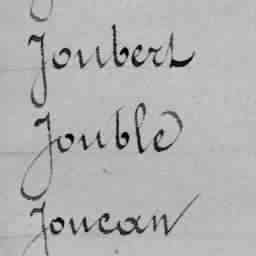 Joubert
Jouble
Joucan